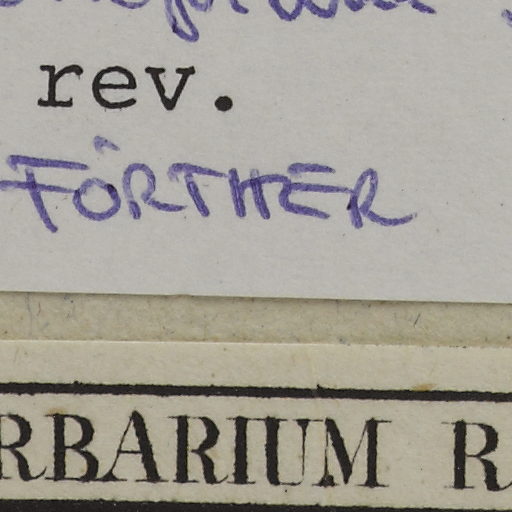 rev.
FÖRTHER
RBARIUM R